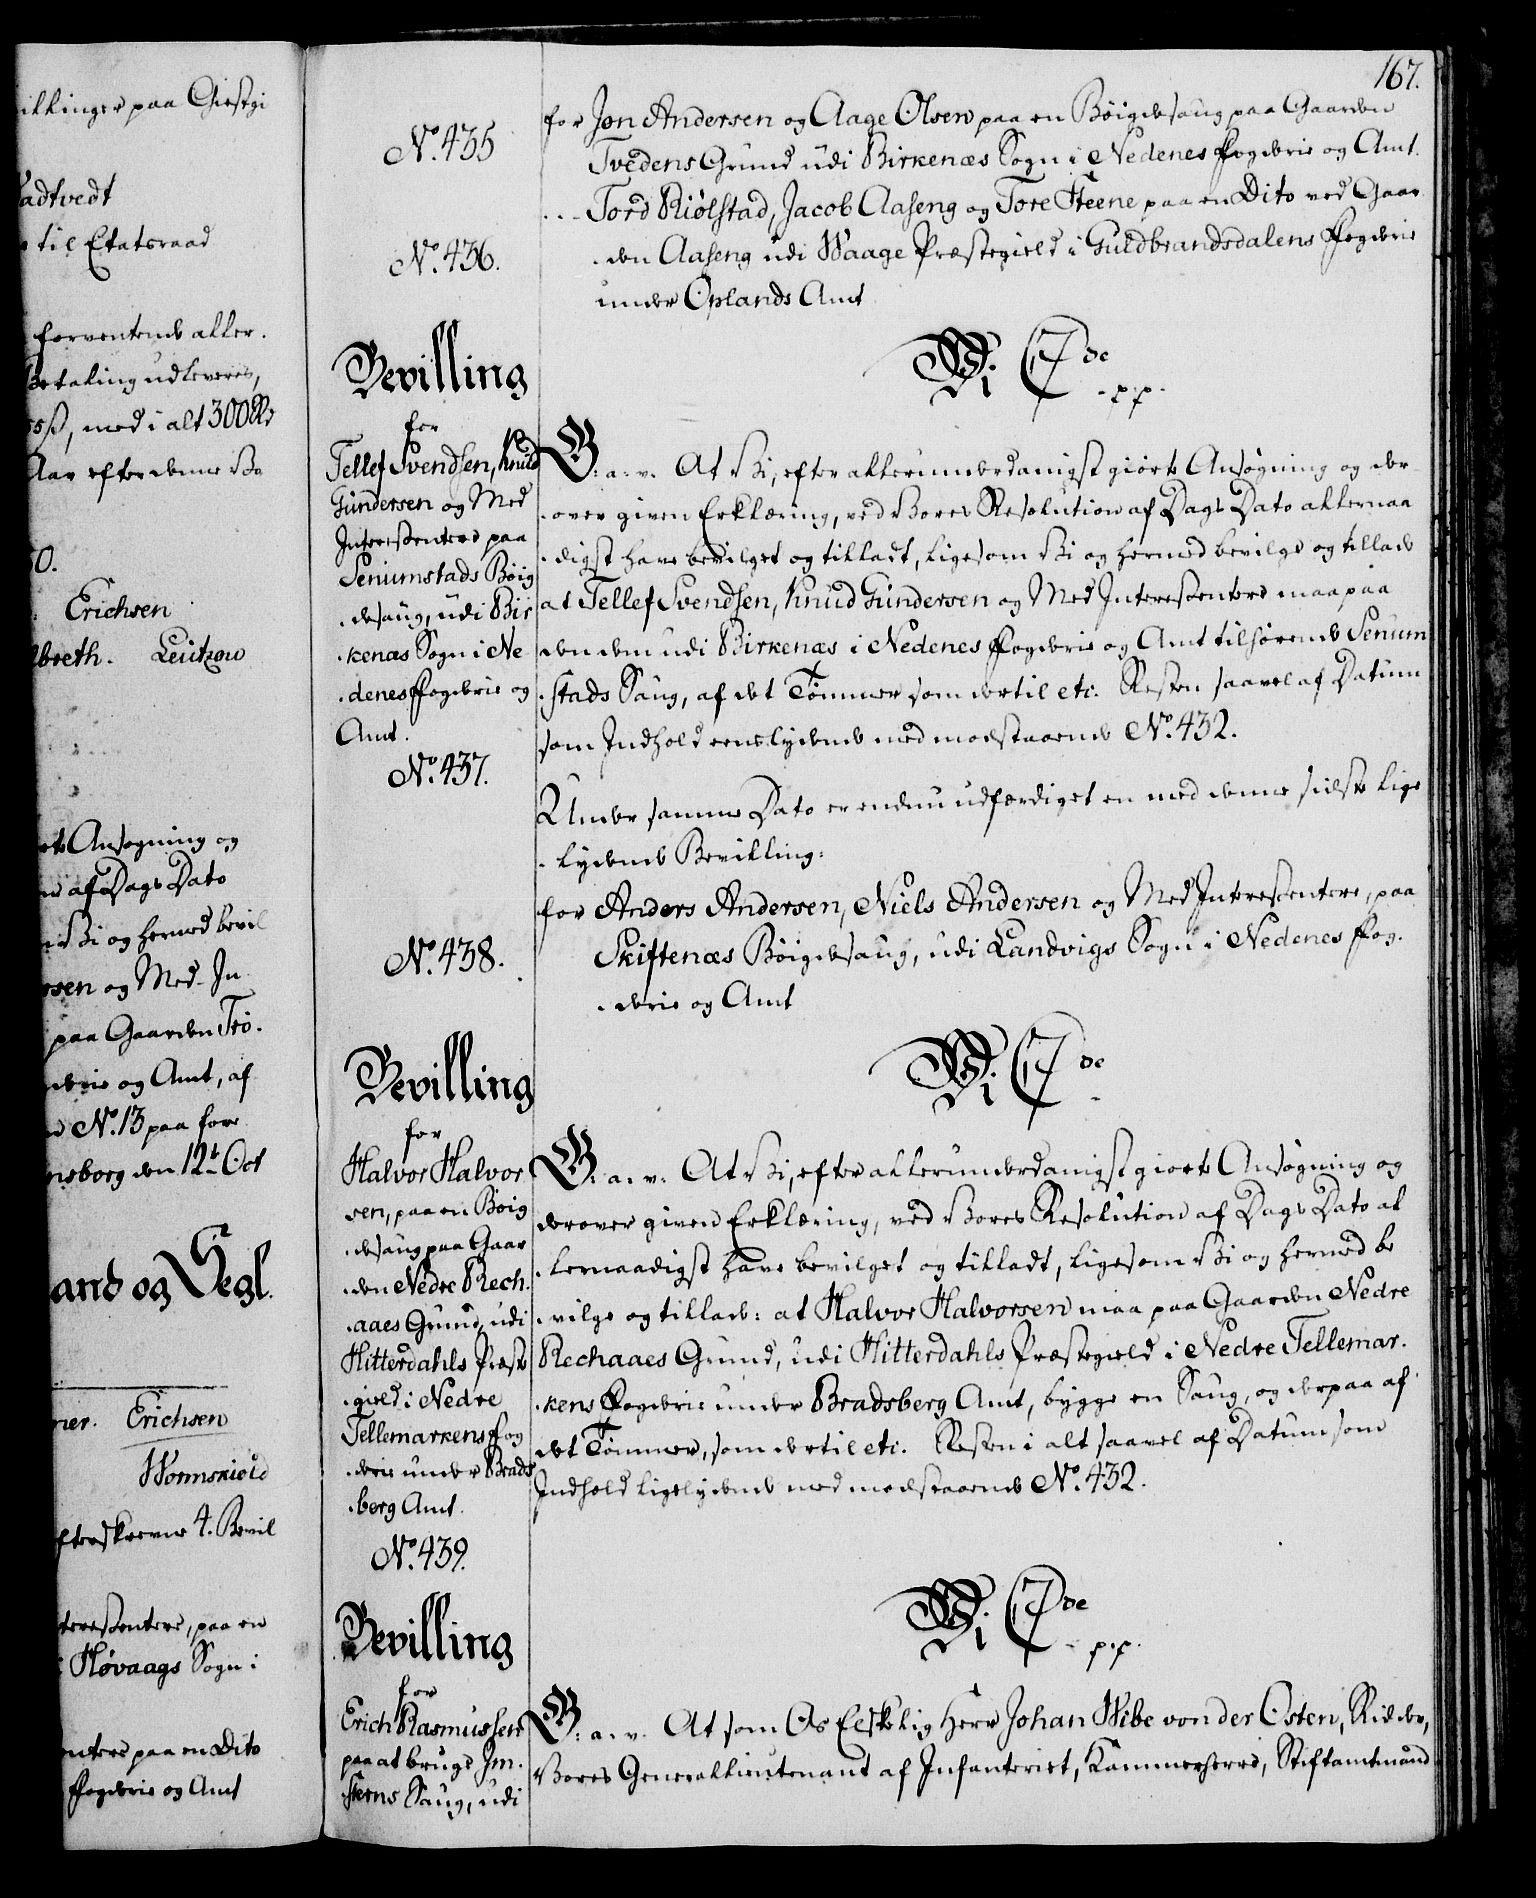 illinger paa Giestgi
adtvedt
til Etatsraad
forventende aller-
betaling udleveres,
ß, med i alt 300 Rd
Aar efter denne Be
0.
Erichsen
lbreth. Leützow
Ansøgning og
af Dags Dato
Vi og hermed bevil
sen og Med-In
paa Gaarden Trö-
derie og Amt, af
No. 13 paa fore
nsborg den 12t Oct
and og Segl.
ner. Erichsen
Wormskiold
fterskrevne 4. Bevil
teressentere, paa en
i Høvaags Sogn i
entere paa en Dito
Fogderie og Amt
167.
No. 435
for Jon Andersen og Aage Olsen paa en Böigdesaug paa Gaarden
Tvedens Grund udi Birkenæs Sogn i Nedenes Fogderie og Amt.
No. 436.
... Tord Riölstad, Jacob Aaseng og Tore Steene paa en Dito ved Gaar-
-den Aaseng udi Waage Præstegield i Guldbrandsdalens Fogderie
under Oplands Amt
Bevilling
for
Tellef Svendsen, Knud
Gundersen og Med
Interessentere paa
Seniumstads Böig
-desaug, udi Bir
-kenæs Sogn i Ne
-denes Fogderie og
Amt.
No. 437.
Vi C7de -p.p.
G: a. v. At Vi, efter allerunderdanigst giorte Ansøgning og der-
-over given Erklæring, ved Vores Resolution af Dags Dato allernaa
-digst have bevilget og tilladt, ligesom Vi og hermed bevilge og tillade
at Tellef Svendsen, Knud Gundersen og Med Interessentere maa paa
den dem udi Birkenæs i Nedenes Fogderie og Amt tilhørende Senum
-stads Saug, af det Tømmer som dertil etc. Resten saavel af Datum
som Indhold eenslydende med modstaaende No. 432.
Under samme Dato er endnu udfærdiget en med denne sidste lige
-lydende Bevilling:
No. 438.
for Anders Andersen, Niels Andersen og Med Interessentere, paa
Skiftenæs Böigdesaug, udi Landvigs Sogn i Nedenes Fog-
-derie og Amt
Bevilling
for
Halvor Halvor
sen, paa en Böig
-desaug paa Gaar
-den Nedre Rech-
-aaes Grund, udi
Hitterdahls Præste
-gield i Nedre
Tellemarkens Fog
-derie under Brads
-berg Amt.
No. 439.
Vi C7de -
G. a. v. At Vi, efter allerunderdanigst giorte Ansøgning og
derover given Erklæring, ved Vores Resolution af Dags Dato al
-lernaadigst have bevilget og tilladt, ligesom Vi og hermed be
-vilge og tillade: at Halvor Halvorsen maa paa Gaarden Nedre
Rechaaes Grund, udi Hitterdahls Præstegield i Nedre Tellemar-
-kens Fogderie under Bradsberg Amt, bygge en Saug, og derpaa af
det Tømmer, som dertil etc. Resten i alt saavel af Datum som
Indhold ligelydende med modstaaende No. 432.
Bevilling
for
Erich Rasmussen
paa at bruge Im-
-stens Saug, udi
Vi C7de - p.p.
G. a. v. At som Os Elskelig Herr Johan Wibe von der Osten, Ridder,
Vores Generallieutenant af Infanteriet, Kammerherre, Stiftamtmand